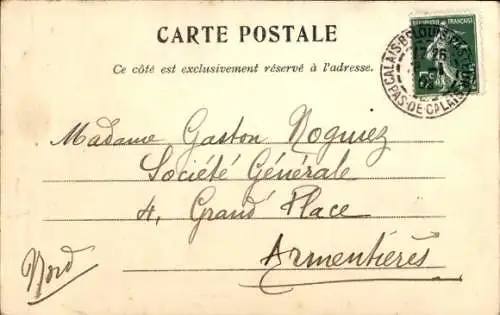 CARTE POSTALE
Ce côté est exclusivement réservé à l'adresse.
RÉPUBLIQUE FRANÇAISE
CALAIS
PAS-DE-CALAIS
Madame Gaston Noguez
Société Générale
4, Grand' Place
Armentières
Nord